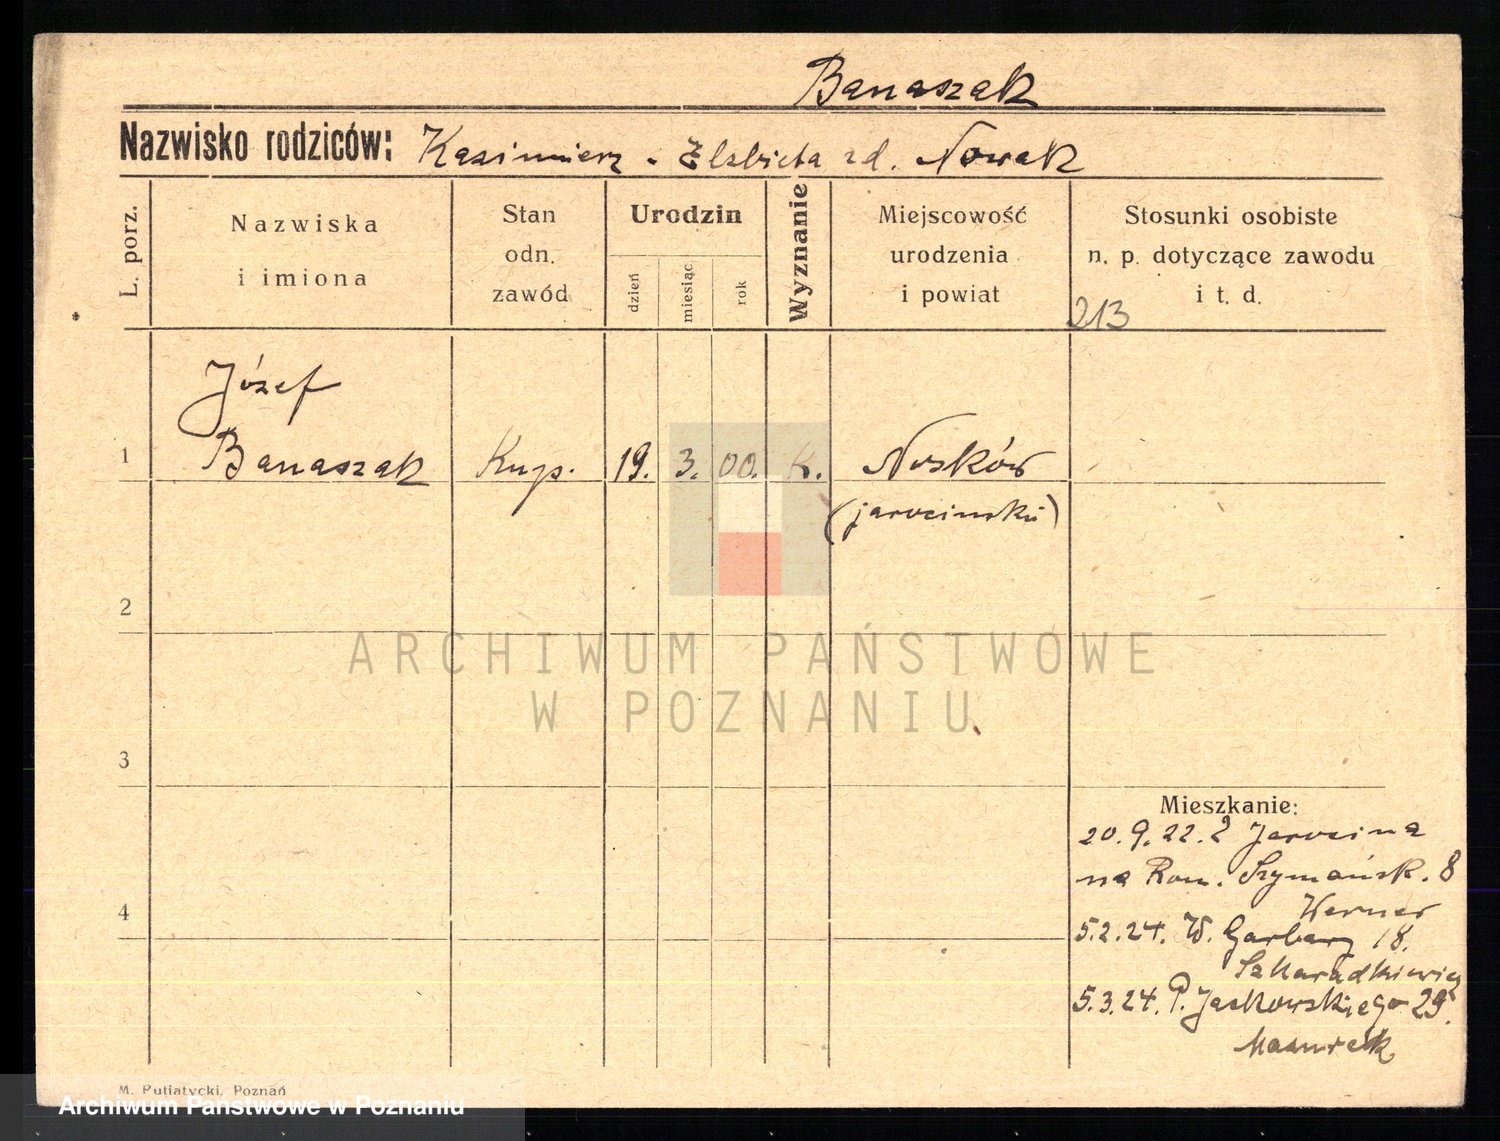 Banaszak
Nazwisko rodziców: Kazimierz - Elzbieta zd. Nowak
L. porz.
Nazwiska
i imiona
Stan
odn.
zawód
Urodzin
dzień
miesiąc
rok
Wyznanie
Miejscowość
urodzenia
i powiat
Stosunki osobiste
n. p. dotyczące zawodu
i t. d.
213
Józef
1 Banaszak Kup. 19. 3. 00. K. Nosków
(jarociński)
2
ARCHIWUM PAŃSTWOWE
W POZNANIU
3
Mieszkanie:
20.9.22. z Jarocina
na Rom. Szymańsk. 8
Werner
4
5.2.24. W. Garbary 18.
Szkaradkiewicz
5.3.24. P. Jackowskiego 29.
Mazurek
M. Putiatycki, Poznań
Archiwum Państwowe w Poznaniu